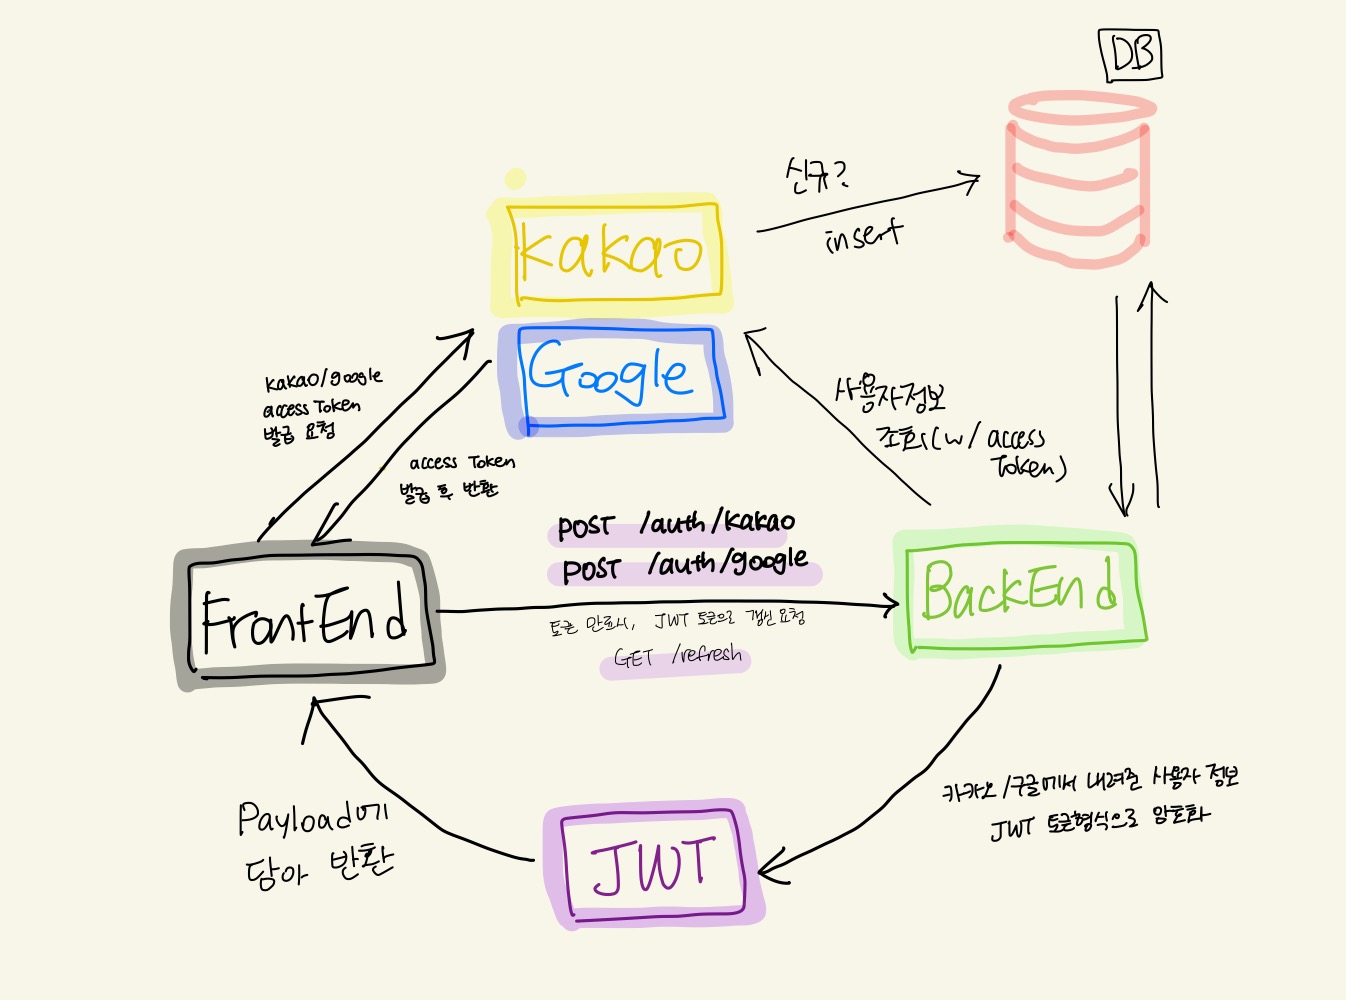 DB
신규?
insert
kakao
Google
kakao/google
access Token
발급 요청
access Token
발급 후 반환
사용자정보
조회(w/access
Token)
POST /auth/kakao
POST /auth/google
토큰 만료시, JWT 토큰으로 갱신 요청
GET /refresh
FrontEnd
BackEnd
카카오/구글에서 내려준 사용자 정보
JWT 토큰형식으로 암호화
Payload에
담아 반환
JWT